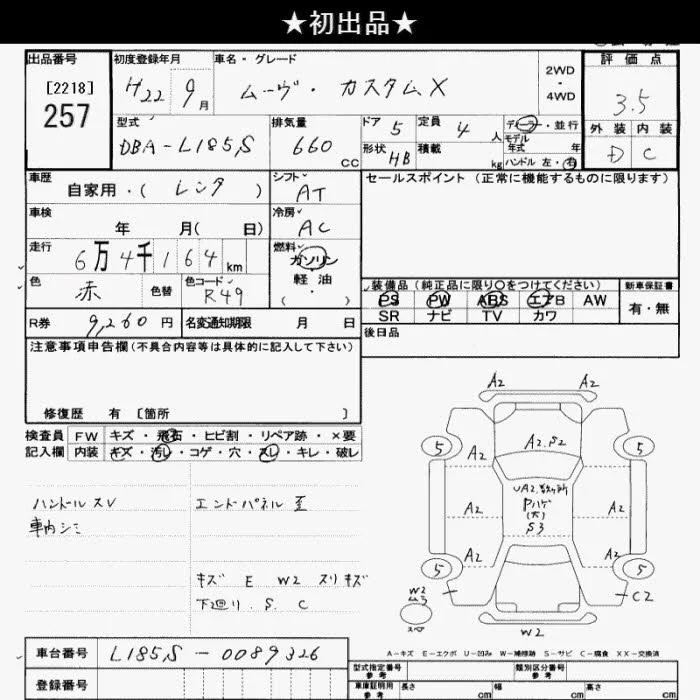 ★初出品★
出品番号
[2218]
257
初度登録年月
H22 9月
車名・グレード
ムーヴ・カスタムX
2WD
・
4WD
評価点
3.5
外装 内装
D C
型式
DBA-L185S
排気量
660 cc
ドア 5
定員 4人
形状 HB
積載 kg
ディーラー・並行
モデル年式 年
ハンドル 左・右
車歴
自家用・( レンタ )
シフト
AT
セールスポイント (正常に機能するものに限ります)
車検
年 月( 日)
冷房
AC
走行
6万4千164km
燃料
ガソリン
軽油
( ・ )
色
赤
色替
色コード
R49
装備品 (純正品に限り〇をつけてください)
PS PW ABS エアB AW
SR ナビ TV カワ
新車保証書
有・無
R券 9,260円
名変通知期限 月 日
後日品
注意事項申告欄(不具合内容等は具体的に記入して下さい)
修復歴 有 [箇所 ]
検査員
記入欄
FW キズ・飛石・ヒビ割・リペア跡・×要
内装 キズ・汚レ・コゲ・穴・スレ・キレ・破レ
ハンドルスレ
車内シミ
エンドパネル歪
キズ E W2 スリキズ
下廻り.S.C
A2 A2
5 A2 A2.S2 5
A2
A2 A2
UA2数ヶ所
Pハゲ
(大)
S3
A2 A2
5 5
W2
ム3
スペ
C2
W2
A-キズ E-エクボ U-凹み W-補修跡 S-サビ C-腐食 XX-交換済
車台番号 L185S-0089326
登録番号
型式指定番号
参考
類別区分番号
参考
車庫証明用
参考
長さ cm
幅 cm
高さ cm